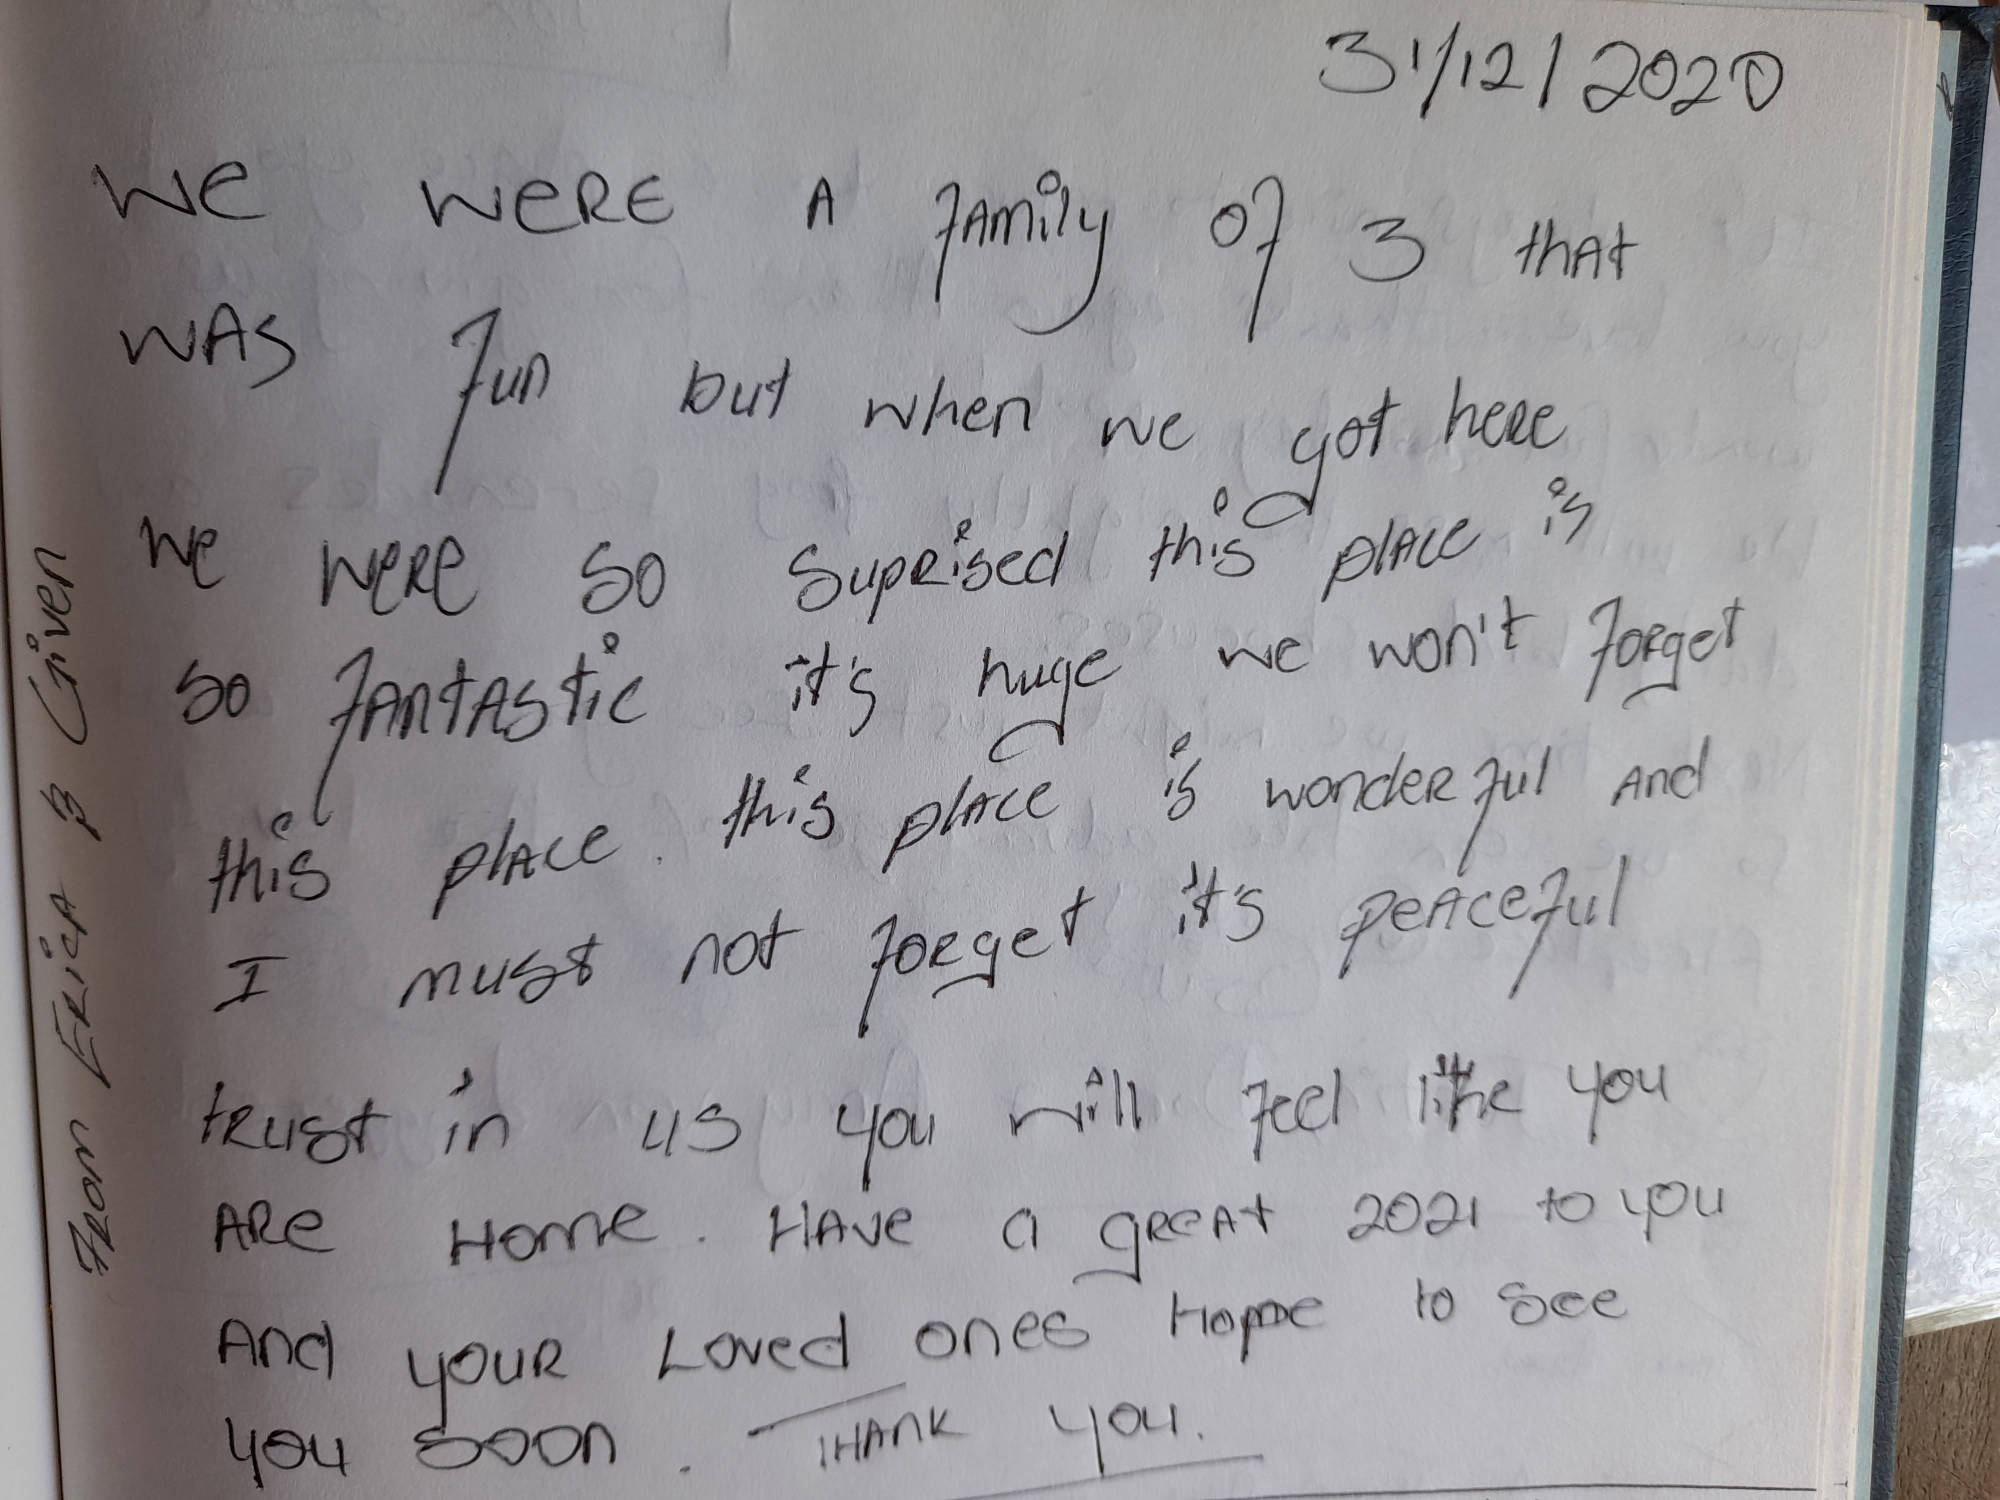 31/12/2020
We were A family of 3 that
was fun but when we got here
we were so suprised this place is
so fantastic it's huge we won't forget
this place. this place is wonderful and
I must not forget it's peaceful
trust in us you will feel like you
Are Home. Have a great 2021 to you
And your Loved ones Hope to see
you soon. THANK you.
From Erica & Given